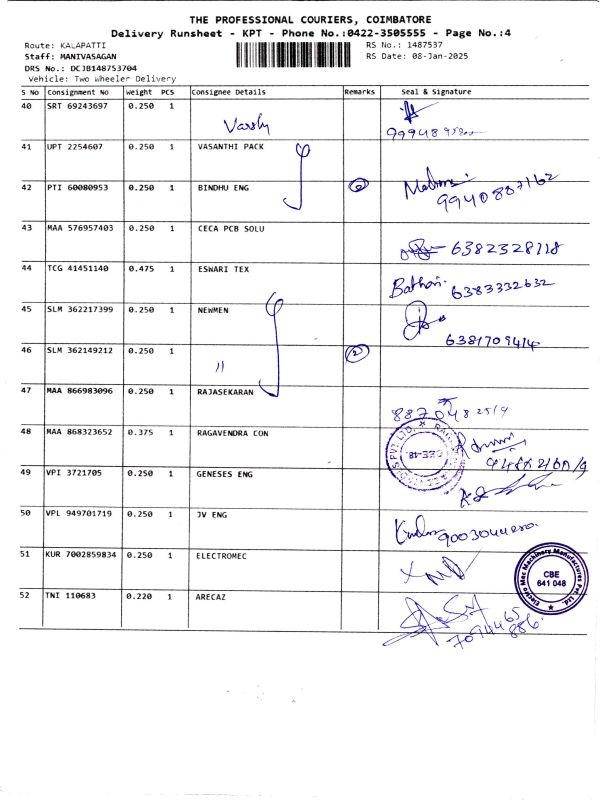 THE PROFESSIONAL COURIERS, COIMBATORE
Delivery Runsheet - KPT - Phone No.:0422-3505555 - Page No.:4
Route: KALAPATTI RS No.: 1487537
Staff: MANIVASAGAN RS Date: 08-Jan-2025
DRS No.: DCJB148753704
Vehicle: Two Wheeler Delivery
S No Consignment No Weight PCS Consignee Details Remarks Seal & Signature
40 SRT 69243697 0.250 1
Varshy
41 UPT 2254607 0.250 1 VASANTHI PACK
42 PTI 60080953 0.250 1 BINDHU ENG 2
9940887162
43 MAA 576957403 0.250 1 CECA PCB SOLU
6382328118
44 TCG 41451140 0.475 1 ESWARI TEX
6383332632
45 SLM 362217399 0.250 1 NEWMEN
6381709414
46 SLM 362149212 0.250 1 2
"
47 MAA 866983096 0.250 1 RAJASEKARAN
48 MAA 868323652 0.375 1 RAGAVENDRA CON
49 VPI 3721705 0.250 1 GENESES ENG
50 VPL 949701719 0.250 1 JV ENG
51 KUR 7002859834 0.250 1 ELECTROMEC
Electro Mec Machinery Manufactures Pvt. Ltd.
CBE
641 048
52 TNI 110683 0.220 1 ARECAZ